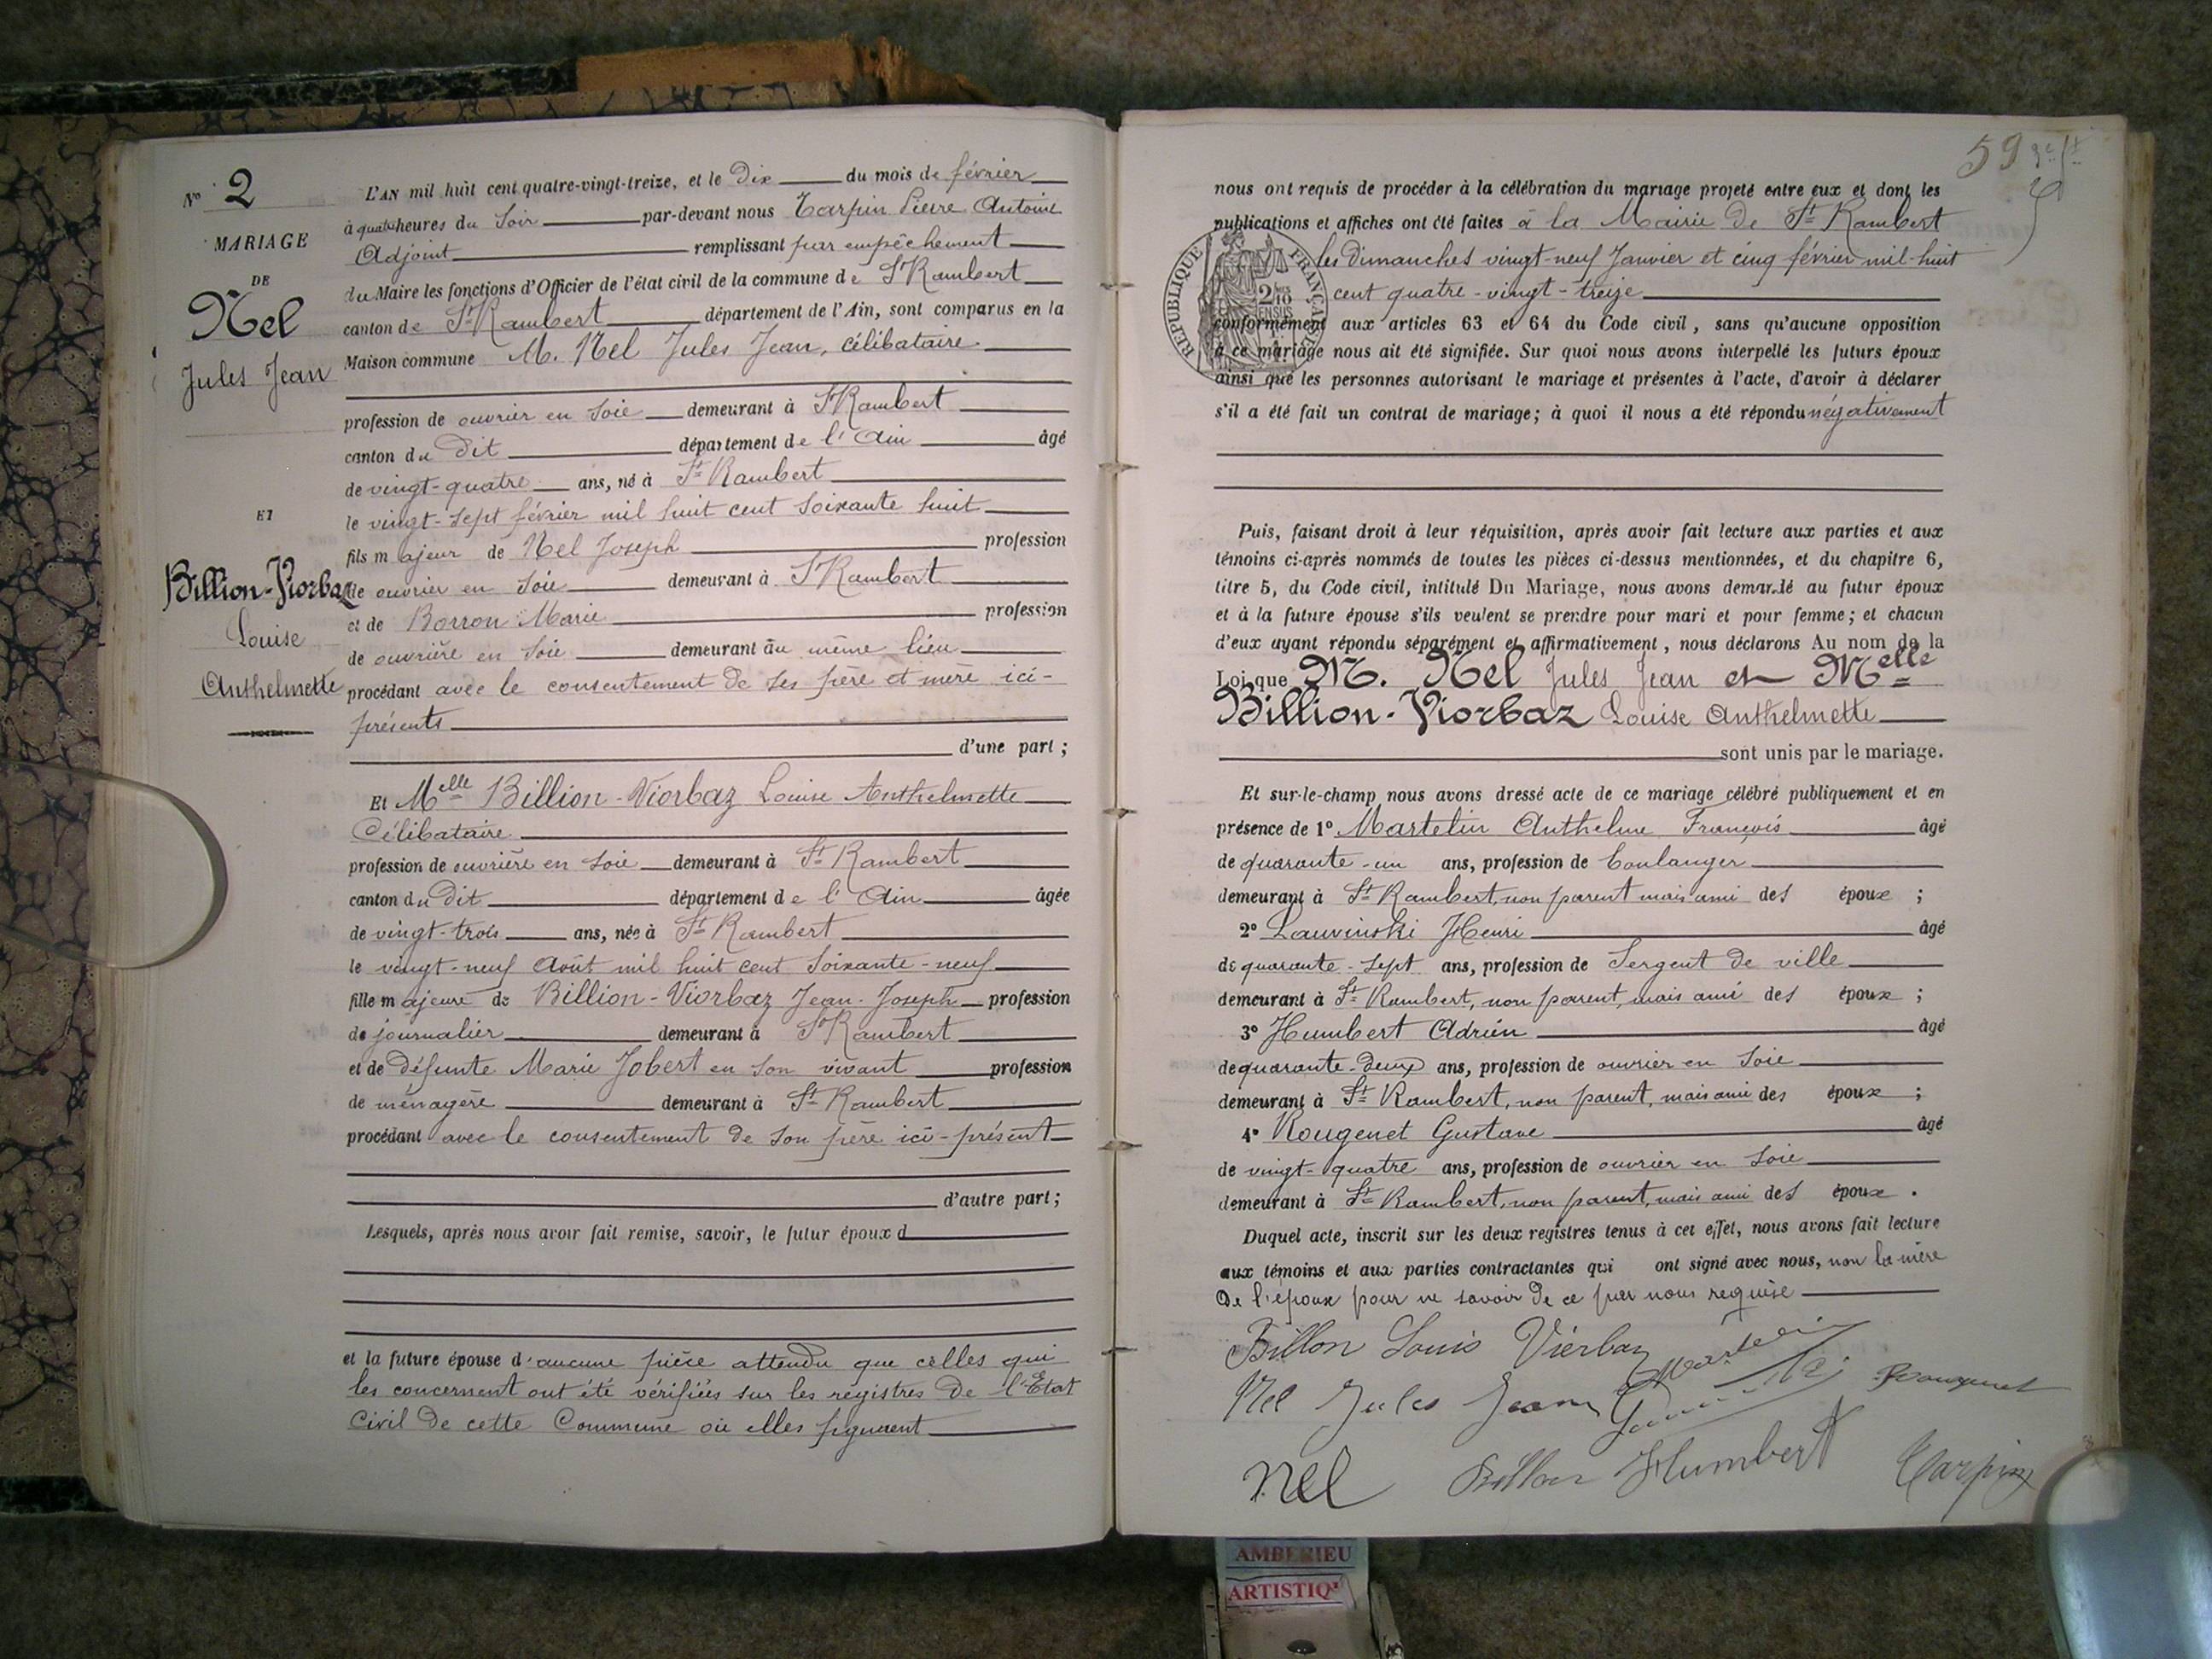 No 2
MARIAGE
DE
Nel
Jules Jean
ET
Billion-Viorbaz
Louise
Anthelmette
L'AN mil huit cent quatre-vingt-treize, et le Dix du mois de février
à quatre heures du Soir par-devant nous Tarpin Pierre Antoine
Adjoint remplissant par empêchement
du Maire les fonctions d'Officier de l'état civil de la commune de St Rambert
canton de St Rambert département de l'Ain, sont comparus en la
Maison commune M. Nel Jules Jean, célibataire
profession de ouvrier en soie demeurant à St Rambert
canton du Dit département de l'Ain âgé
de vingt-quatre ans, né à St Rambert
le vingt-sept février mil huit cent soixante huit
fils majeur de Nel Joseph profession
de ouvrier en soie demeurant à St Rambert
et de Borron Marie profession
de ouvrière en soie demeurant au même lieu
procédant avec le consentement de ses père et mère ici-
présents
d'une part ;
Et Melle Billion-Viorbaz Louise Anthelmette
Célibataire.
profession de ouvrière en soie demeurant à St Rambert
canton du Dit département de l'Ain âgée
de vingt-trois ans, née à St Rambert
le vingt-neuf Août mil huit cent soixante-neuf
fille majeure de Billion-Viorbaz Jean-Joseph profession
de journalier demeurant à St Rambert
et de défunte Marie Jobert en son vivant profession
de ménagère demeurant à St Rambert
procédant avec le consentement de son père ici-présent
d'autre part ;
Lesquels, après nous avoir fait remise, savoir, le futur époux d
et la future épouse d'aucune pièce attendu que celles qui
les concernent ont été vérifiées sur les registres de l'Etat
Civil de cette Commune où elles figurent
59
nous ont requis de procéder à la célébration du mariage projeté entre eux et dont les
publications et affiches ont été faites à la Mairie de St Rambert
les dimanches vingt-neuf Janvier et cinq février mil-huit
cent quatre-vingt-treize
RÉPUBLIQUE FRANÇAISE
2/10 EN SUS
conformément aux articles 63 et 64 du Code civil, sans qu'aucune opposition
à ce mariage nous ait été signifiée. Sur quoi nous avons interpellé les futurs époux
ainsi que les personnes autorisant le mariage et présentes à l'acte, d'avoir à déclarer
s'il a été fait un contrat de mariage ; à quoi il nous a été répondu négativement
Puis, faisant droit à leur réquisition, après avoir fait lecture aux parties et aux
témoins ci-après nommés de toutes les pièces ci-dessus mentionnées, et du chapitre 6,
titre 5, du Code civil, intitulé Du Mariage, nous avons demandé au futur époux
et à la future épouse s'ils veulent se prendre pour mari et pour femme ; et chacun
d'eux ayant répondu séparément et affirmativement, nous déclarons Au nom de la
Loi que M. Nel Jules Jean et Melle
Billion-Viorbaz Louise Anthelmette
sont unis par le mariage.
Et sur-le-champ nous avons dressé acte de ce mariage célébré publiquement et en
présence de 1º Martelin Anthelme François âgé
de quarante-un ans, profession de boulanger
demeurant à St Rambert, non parent mais ami des époux ;
2º Lauvinski Henri âgé
de quarante-sept ans, profession de Sergent de ville
demeurant à St Rambert, non parent, mais ami des époux ;
3º Humbert Adrien âgé
de quarante-deux ans, profession de ouvrier en soie
demeurant à St Rambert, non parent, mais ami des époux ;
4º Rougenet Gustave âgé
de vingt-quatre ans, profession de ouvrier en soie
demeurant à St Rambert, non parent, mais ami des époux .
Duquel acte, inscrit sur les deux registres tenus à cet effet, nous avons fait lecture
aux témoins et aux parties contractantes qui ont signé avec nous, non la mère
de l'époux pour ne savoir de ce par nous requise
Billon Louis Vierbaz Martelin
Nel Jules Jean
nel Billon Humbert Tarpin
AMBERIEU
ARTISTIQ